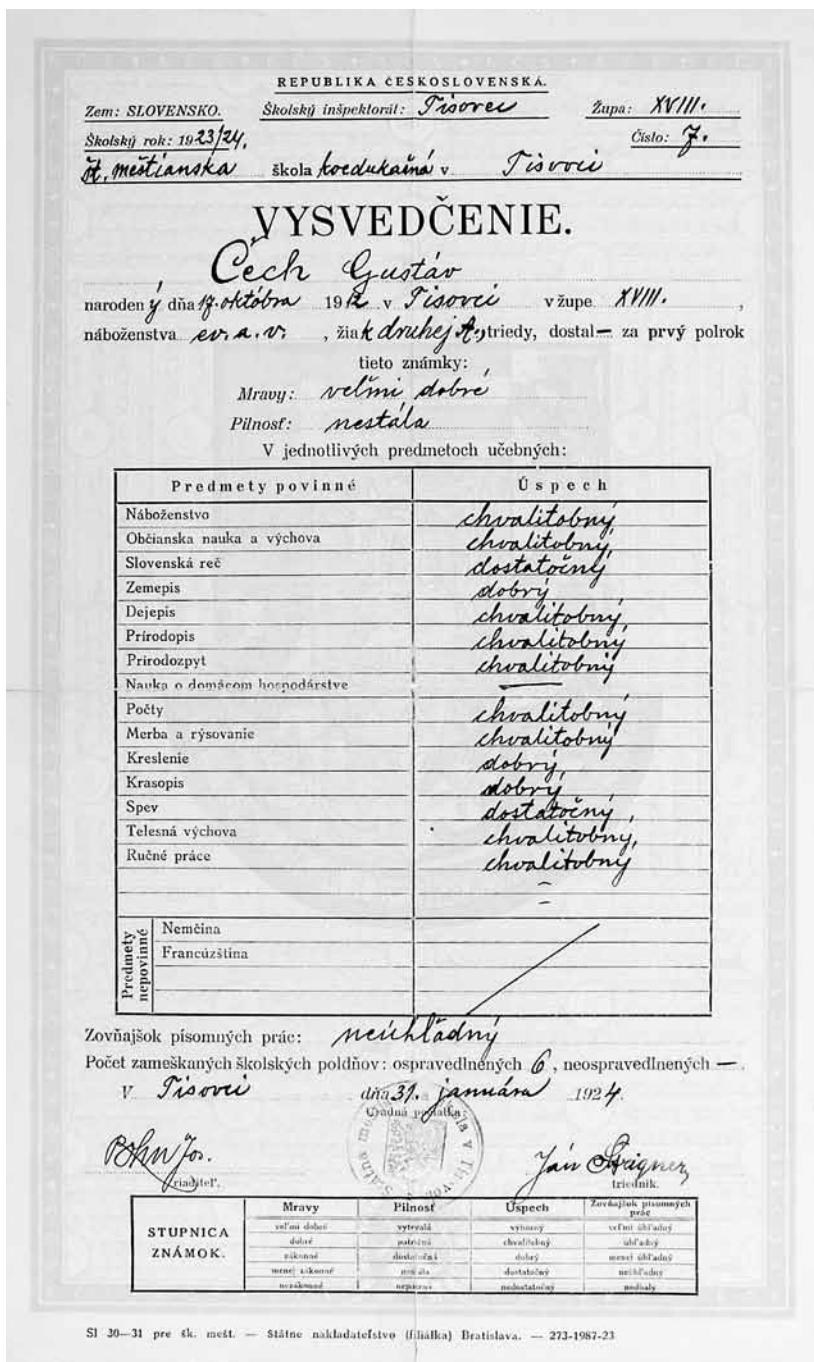 REPUBLIKA ČESKOSLOVENSKÁ.
Zem: SLOVENSKO. Školský inšpektorát: Tisovec Župa: XVIII.
Školský rok: 1923/24. Číslo: 7.
št. meštianska škola koedukačná v Tisovci
VYSVEDČENIE.
Čech Gustáv
narodený dňa 17. októbra 1912 v Tisovci v župe XVIII.,
náboženstva ev. a. v. , žiak druhej A. triedy, dostal — za prvý polrok
tieto známky:
Mravy: veľmi dobré
Pilnosť: nestála
V jednotlivých predmetoch učebných:
Predmety povinné Úspech
Náboženstvo chvalitobný,
Občianska nauka a výchova chvalitobný,
Slovenská reč dostatočný
Zemepis dobrý,
Dejepis chvalitobný,
Prírodopis chvalitobný
Prírodozpyt chvalitobný
Nauka o domácom hospodárstve —
Počty chvalitobný
Merba a rýsovanie chvalitobný
Kreslenie dobrý,
Krasopis dobrý
Spev dostatočný,
Telesná výchova chvalitobný,
Ručné práce chvalitobný
Predmety nepovinné
Nemčina
Francúzština
Zovňajšok písomných prác: neúhľadný
Počet zameškaných školských poldňov: ospravedlnených 6, neospravedlnených —.
V Tisovci dňa 31. januára 1924.
Úradná pečiatka:
Bohn Jos. Ján
riaditeľ. triednik.
STUPNICA ZNÁMOK.
Mravy Pilnosť Úspech Zovňajšok písomných prác
veľmi dobré vytrvalá výborný veľmi úhľadný
dobré náležitá chvalitobný úhľadný
zákonné dostatočná dobrý menej úhľadný
menej zákonné nestála dostatočný neúhľadný
nezákonné nepatrná nedostatočný nedbalý
Sl 30—31 pre šk. mešt. — Štátne nakladateľstvo (filiálka) Bratislava. — 273-1987-23